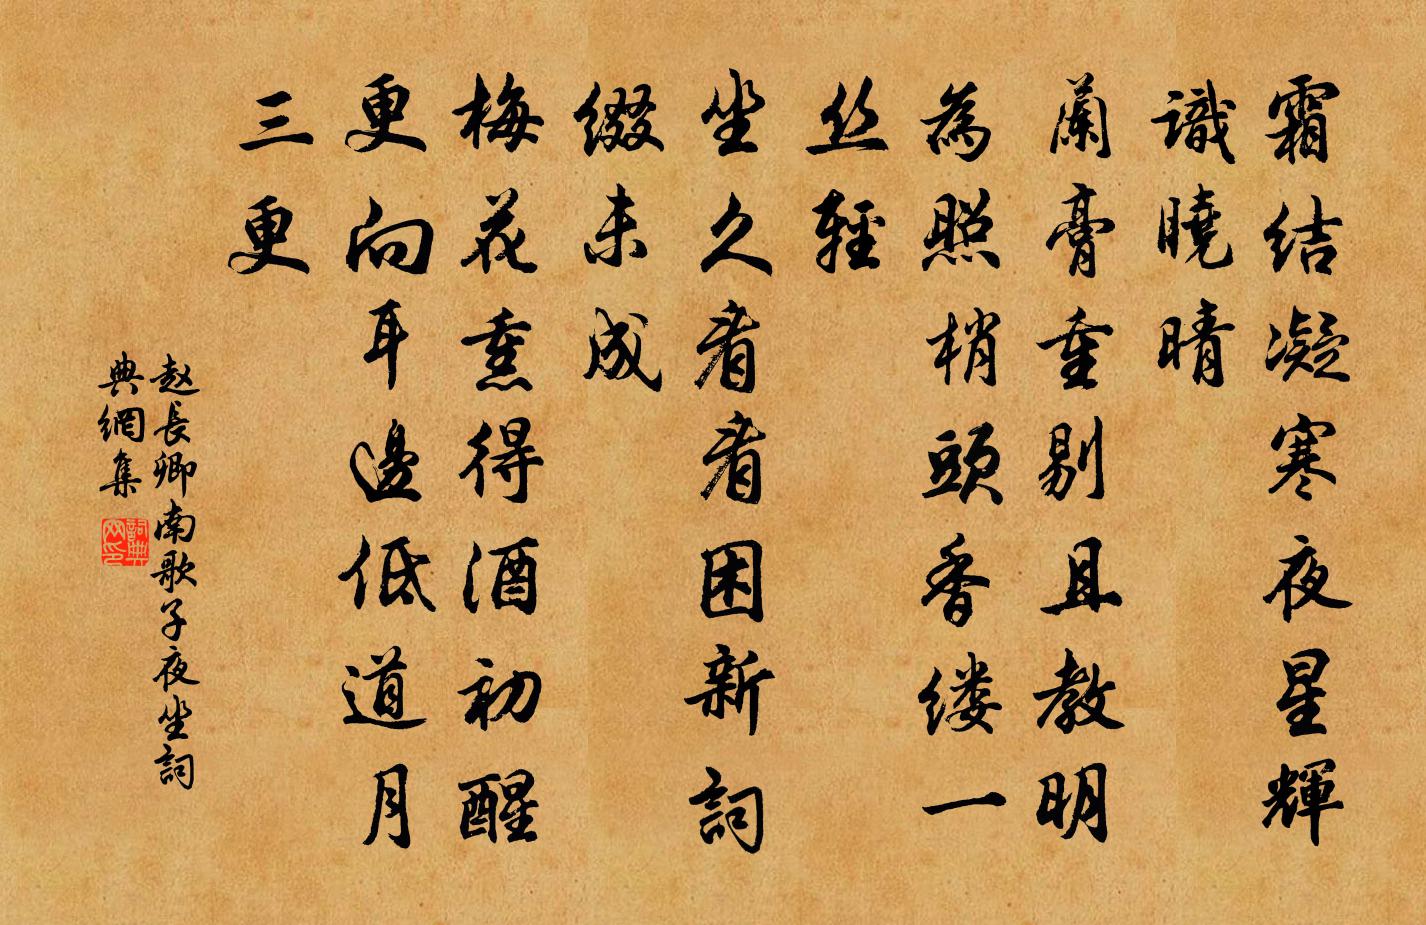 霜结凝寒夜星輝
識曉晴
蘭膏重剔且教明
為照梢頭香缕一
丝輕
坐久看看困新詞
缀未成
梅花熏得酒初醒
更向耳邊低道月
三更
赵長卿南歌子夜坐詞
典網集
詞典
网印